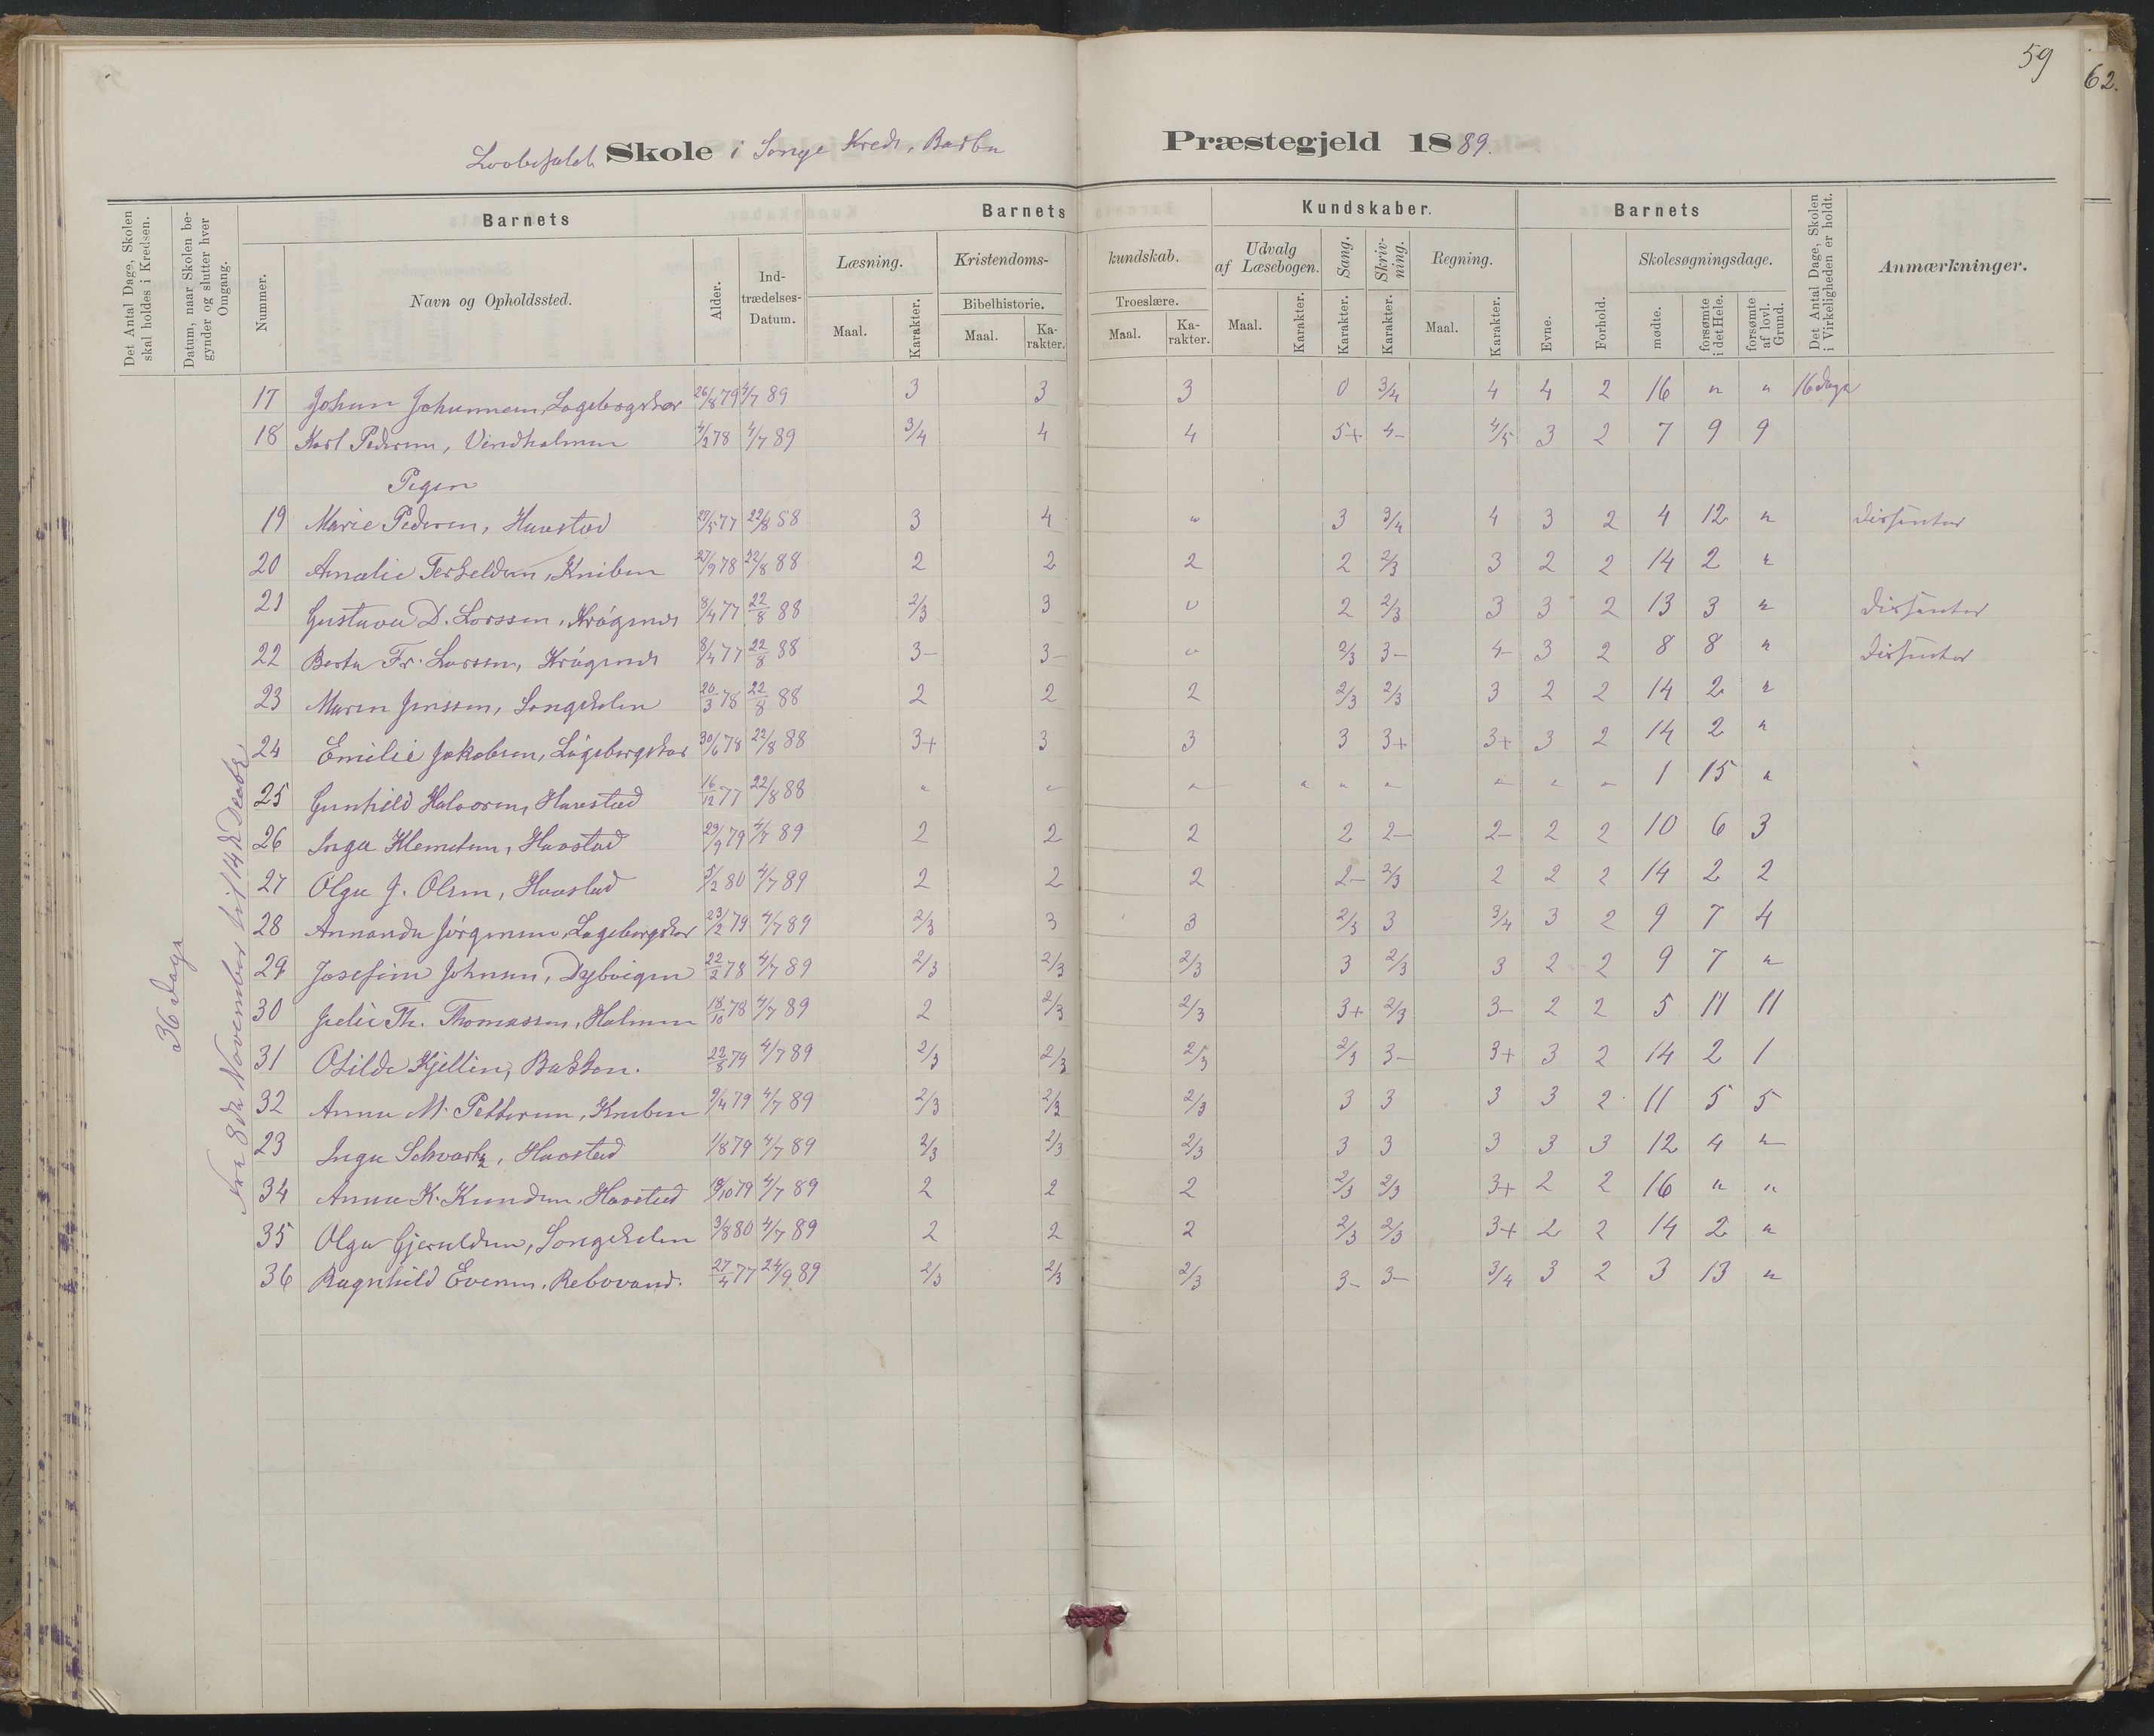 59
62.
Skole i Songe Kreds, Barbu Præstegjeld 1889.
Det Antal Dage, Skolen skal holdes i Kredsen.
Datum, naar Skolen begynder og slutter hver Omgang.
Barnets
Nummer.
Navn og Opholdssted.
Alder.
Indtrædelses-Datum.
Barnets Kundskaber.
Læsning.
Maal.
Karakter.
Kristendoms-kundskab.
Bibelhistorie.
Maal.
Karakter.
Troeslære.
Maal.
Karakter.
Udvalg af Læsebogen.
Maal.
Karakter.
Sang.
Karakter.
Skrivning.
Karakter.
Regning.
Maal.
Karakter.
Barnets
Evne.
Forhold.
Skolesøgningsdage.
mødte.
forsømte i det Hele.
forsømte af lovl. Grund.
Det Antal Dage, Skolen i Virkeligheden er holdt.
Anmærkninger.
36 Dage
Fra 8de November til 14de Decbr
17 Johan Johannesen, 26/8 79 4/7 89 3 3 3 0 3/4 4 4 2 16 " " 16 dage
18 Karl Pedersen, Vindholmen 4/2 78 4/7 89 3/4 4 4 5+ 4- 4/5 3 2 7 9 9
Piger
19 Marie Pedersen, Havstad 27/5 77 22/8 88 3 4 " 3 3/4 4 3 2 4 12 " Dissenter
20 Amalie Terkeldsen, Kniben 27/9 78 22/8 88 2 2 2 2 2/3 3 2 2 14 2 "
21 Gustava D. Larssen, Krøgenes 8/4 77 22/8 88 2/3 3 0 2 2/3 3 3 2 13 3 " Dissenter
22 Berta Fr. Larssen, Krøgenes 8/4 77 22/8 88 3- 3- 0 2/3 3- 4- 3 2 8 8 " Dissenter
23 Maren Jenssen, Songekilen 20/3 78 22/8 88 2 2 2 2/3 2/3 3 2 2 14 2 "
24 Emilie Jakobsen, 30/6 78 22/8 88 3+ 3 3 3 3+ 3+ 3 2 14 2 "
25 Gunhild Halvorsen, Havstad 16/12 77 22/8 88 " " " " " " " " " 1 15 "
26 Inga Klemetsen, Havstad 29/9 79 4/7 89 2 2 2 2 2- 2- 2 2 10 6 3
27 Olga J. Olsen, Havstad 5/2 80 4/7 89 2 2 2 2- 2/3 2 2 2 14 2 2
28 Annanda Jørgensen, 23/2 79 4/7 89 2/3 3 3 2/3 3 3/4 3 2 9 7 4
29 Josefine Johnsen, Dybvigen 22/2 78 4/7 89 2/3 2/3 2/3 3 2/3 3 2 2 9 7 "
30 Julie Th. Thomassen, Holmen 18/10 78 4/7 89 2 2/3 2/3 3+ 2/3 3- 2 2 5 11 11
31 Otilde Kjellin, Bakken. 22/8 79 4/7 89 2/3 2/3 2/3 2/3 3- 3+ 3 2 14 2 1
32 Anna M. Pettersen, Kniben 9/4 79 4/7 89 2/3 2/3 2/3 3 3 3 3 2 11 5 5
23 Inga Schvartz, Havstad 1/8 79 4/7 89 2/3 2/3 2/3 3 3 3 3 3 12 4 "
34 Anna K. Knudsen, Havstad 19/10 79 4/7 89 2 2 2 2/3 2/3 3+ 2 2 16 " "
35 Olga Gjeruldsen, Songekilen 3/8 80 4/7 89 2 2 2 2/3 2/3 3+ 2 2 14 2 "
36 Ragnhild Evensen, Rebovand. 27/4 77 24/9 89 2/3 2/3 2/3 3- 3- 3/4 3 2 3 13 "